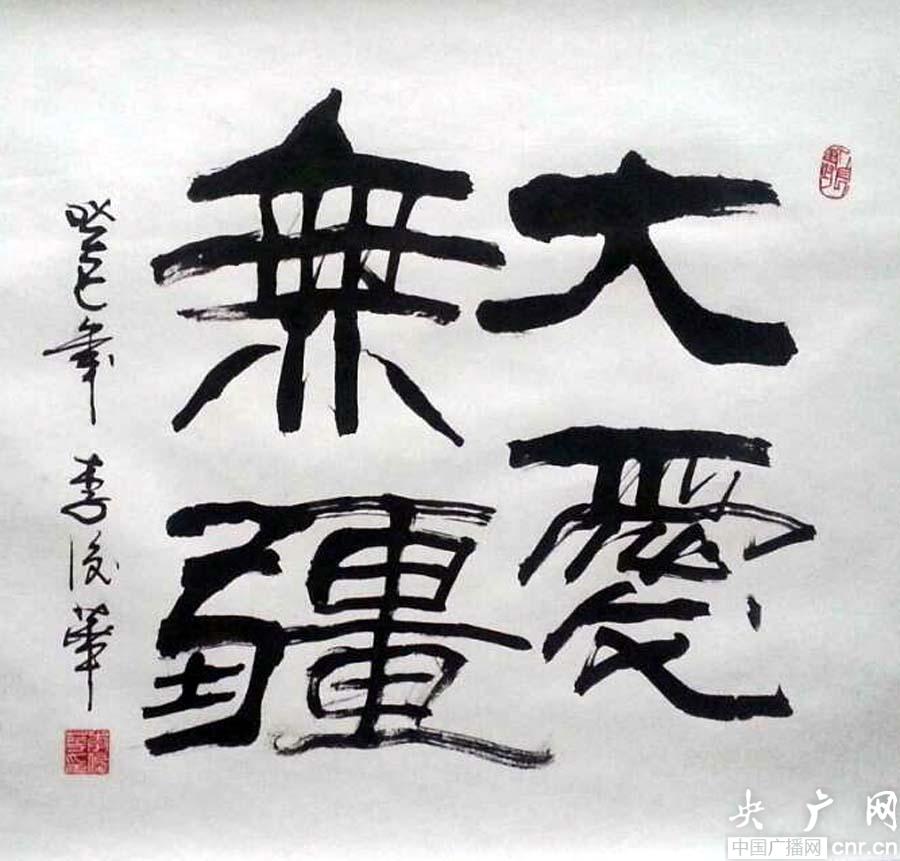 大愛
無疆
癸巳年 李後華
央广网
中国广播网 cnr.cn